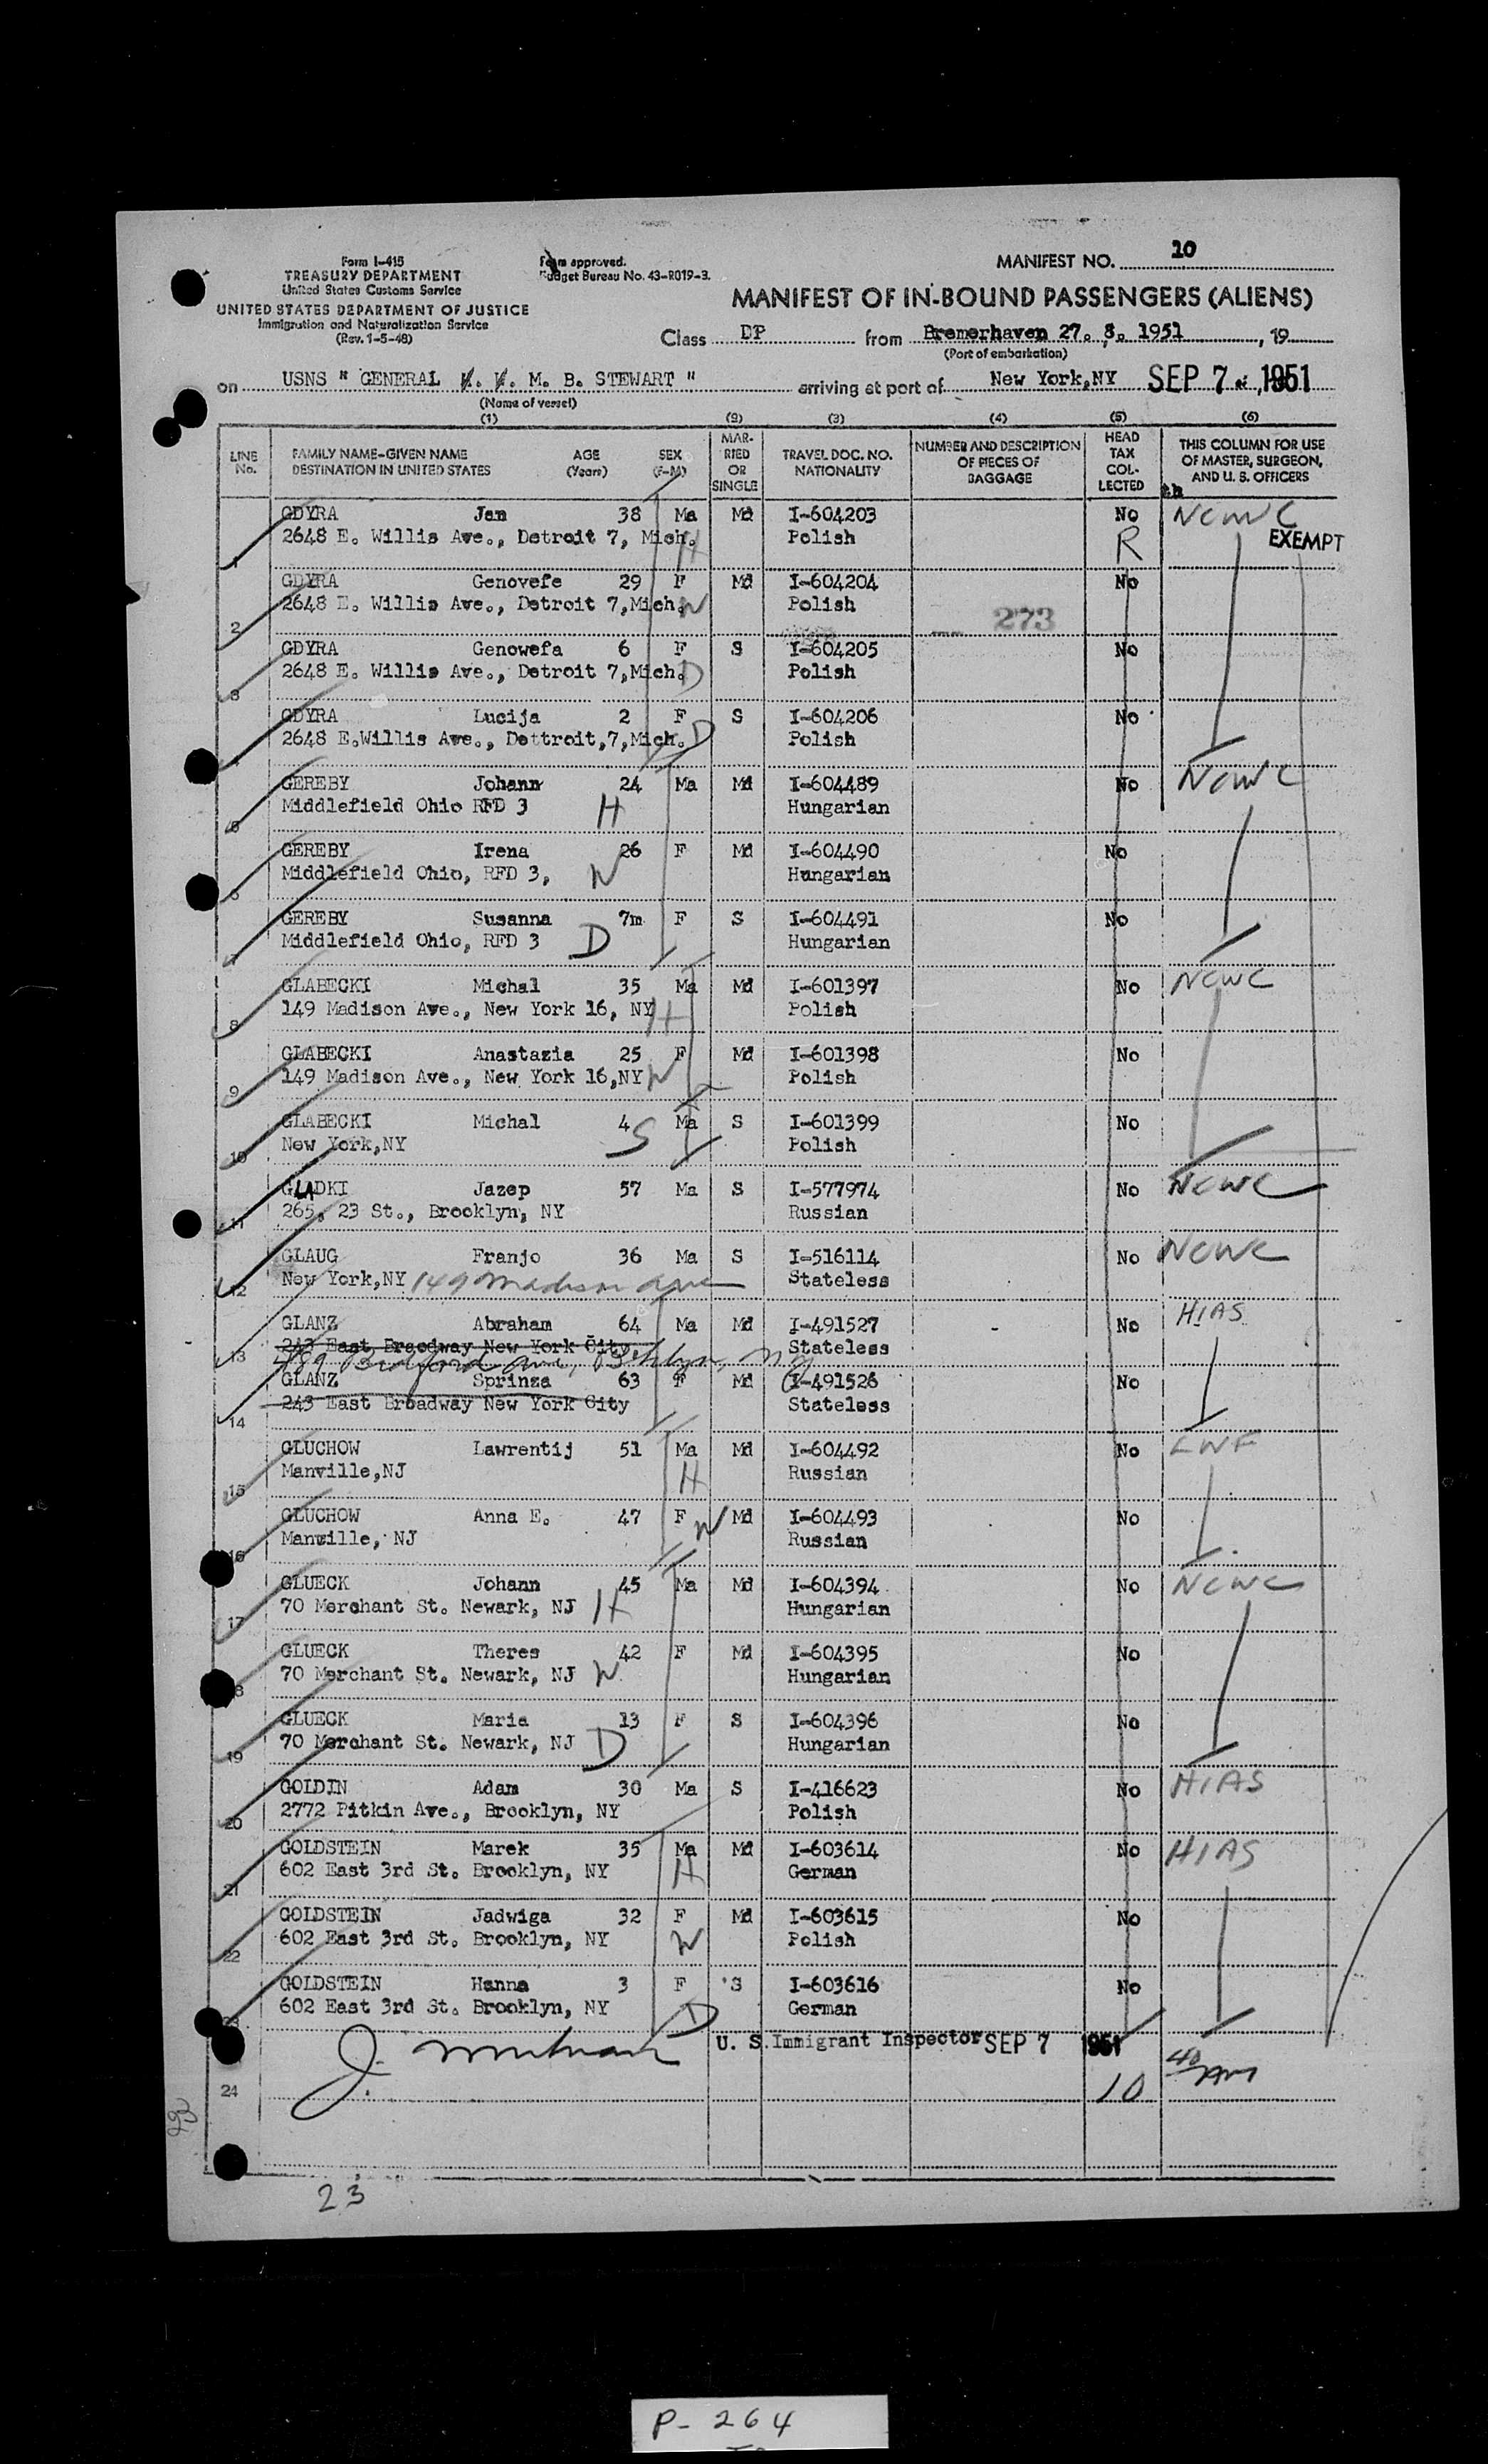 Form I-415
TREASURY DEPARTMENT
United States Customs Service
UNITED STATES DEPARTMENT OF JUSTICE
Immigration and Naturalization Service
(Rev. 1-5-48)
Form approved.
Budget Bureau No. 43-R019-3.
MANIFEST NO. 10
MANIFEST OF IN-BOUND PASSENGERS (ALIENS)
Class DP from Bremerhaven 27. 8. 1951, 19
(Port of embarkation)
on USNS " GENERAL M. B. STEWART " arriving at port of New York,NY SEP 7 1951
(Name of vessel)
(1) (2) (3) (4) (5) (6)
LINE No. FAMILY NAME-GIVEN NAME DESTINATION IN UNITED STATES AGE (Years) SEX (F-M) MARRIED OR SINGLE TRAVEL DOC. NO. NATIONALITY NUMBER AND DESCRIPTION OF PIECES OF BAGGAGE HEAD TAX COLLECTED THIS COLUMN FOR USE OF MASTER, SURGEON, AND U. S. OFFICERS
GDYRA Jan 38 Ma Md I-604203 No NCWC
1 2648 E. Willis Ave., Detroit 7, Mich. H Polish R EXEMPT
GDYRA Genovefe 29 F Md I-604204 No
2648 E. Willis Ave., Detroit 7,Mich. W Polish 273
2
GDYRA Genowefa 6 F S I-604205 No
3 2648 E. Willis Ave., Detroit 7,Mich. D Polish
GDYRA Lucija 2 F S I-604206 No
4 2648 E.Willis Ave., Dettroit,7,Mich. D Polish
GEREBY Johann 24 Ma Md I-604489 No NCWC
5 Middlefield Ohio RFD 3 H Hungarian
GEREBY Irena 26 F Md I-604490 No
6 Middlefield Ohio, RFD 3, W Hungarian
GEREBY Susanna 7m F S I-604491 No
7 Middlefield Ohio, RFD 3 D Hungarian
GLABECKI Michal 35 Ma Md I-601397 No NCWC
8 149 Madison Ave., New York 16, NY H Polish
GLABECKI Anastazia 25 F Md I-601398 No
9 149 Madison Ave., New York 16,NY W Polish
GLABECKI Michal 4 Ma S I-601399 No
10 New York,NY S Polish
GLADKI Jazep 57 Ma S I-577974 No NCWC
11 265, 23 St., Brooklyn, NY Russian
GLAUG Franjo 36 Ma S I-516114 No NCWC
12 New York,NY 149 Madison Ave Stateless
GLANZ Abraham 64 Ma Md I-491527 No HIAS
13 243 East Broadway New York City Stateless
489 Bedford Ave, Bklyn, NY
GLANZ Sprinza 63 F Md I-491526 No
14 243 East Broadway New York City Stateless
GLUCHOW Lawrentij 51 Ma Md I-604492 No LWF
15 Manville,NJ H Russian
GLUCHOW Anna E. 47 F W Md I-604493 No
16 Manville, NJ Russian
GLUECK Johann 45 Ma Md I-604394 No NCWC
17 70 Merchant St. Newark, NJ H Hungarian
GLUECK Theres 42 F Md I-604395 No
18 70 Merchant St. Newark, NJ W Hungarian
GLUECK Maria 13 F S I-604396 No
19 70 Merchant St. Newark, NJ D Hungarian
GOLDIN Adam 30 Ma S I-416623 No HIAS
20 2772 Pitkin Ave., Brooklyn, NY Polish
GOLDSTEIN Marek 35 Ma Md I-603614 No HIAS
21 602 East 3rd St. Brooklyn, NY H German
GOLDSTEIN Jadwiga 32 F Md I-603615 No
22 602 East 3rd St. Brooklyn, NY W Polish
GOLDSTEIN Hanna 3 F S I-603616 No
602 East 3rd St. Brooklyn, NY D German
J. U. S. Immigrant Inspector SEP 7 1951
24 10
23
P-264